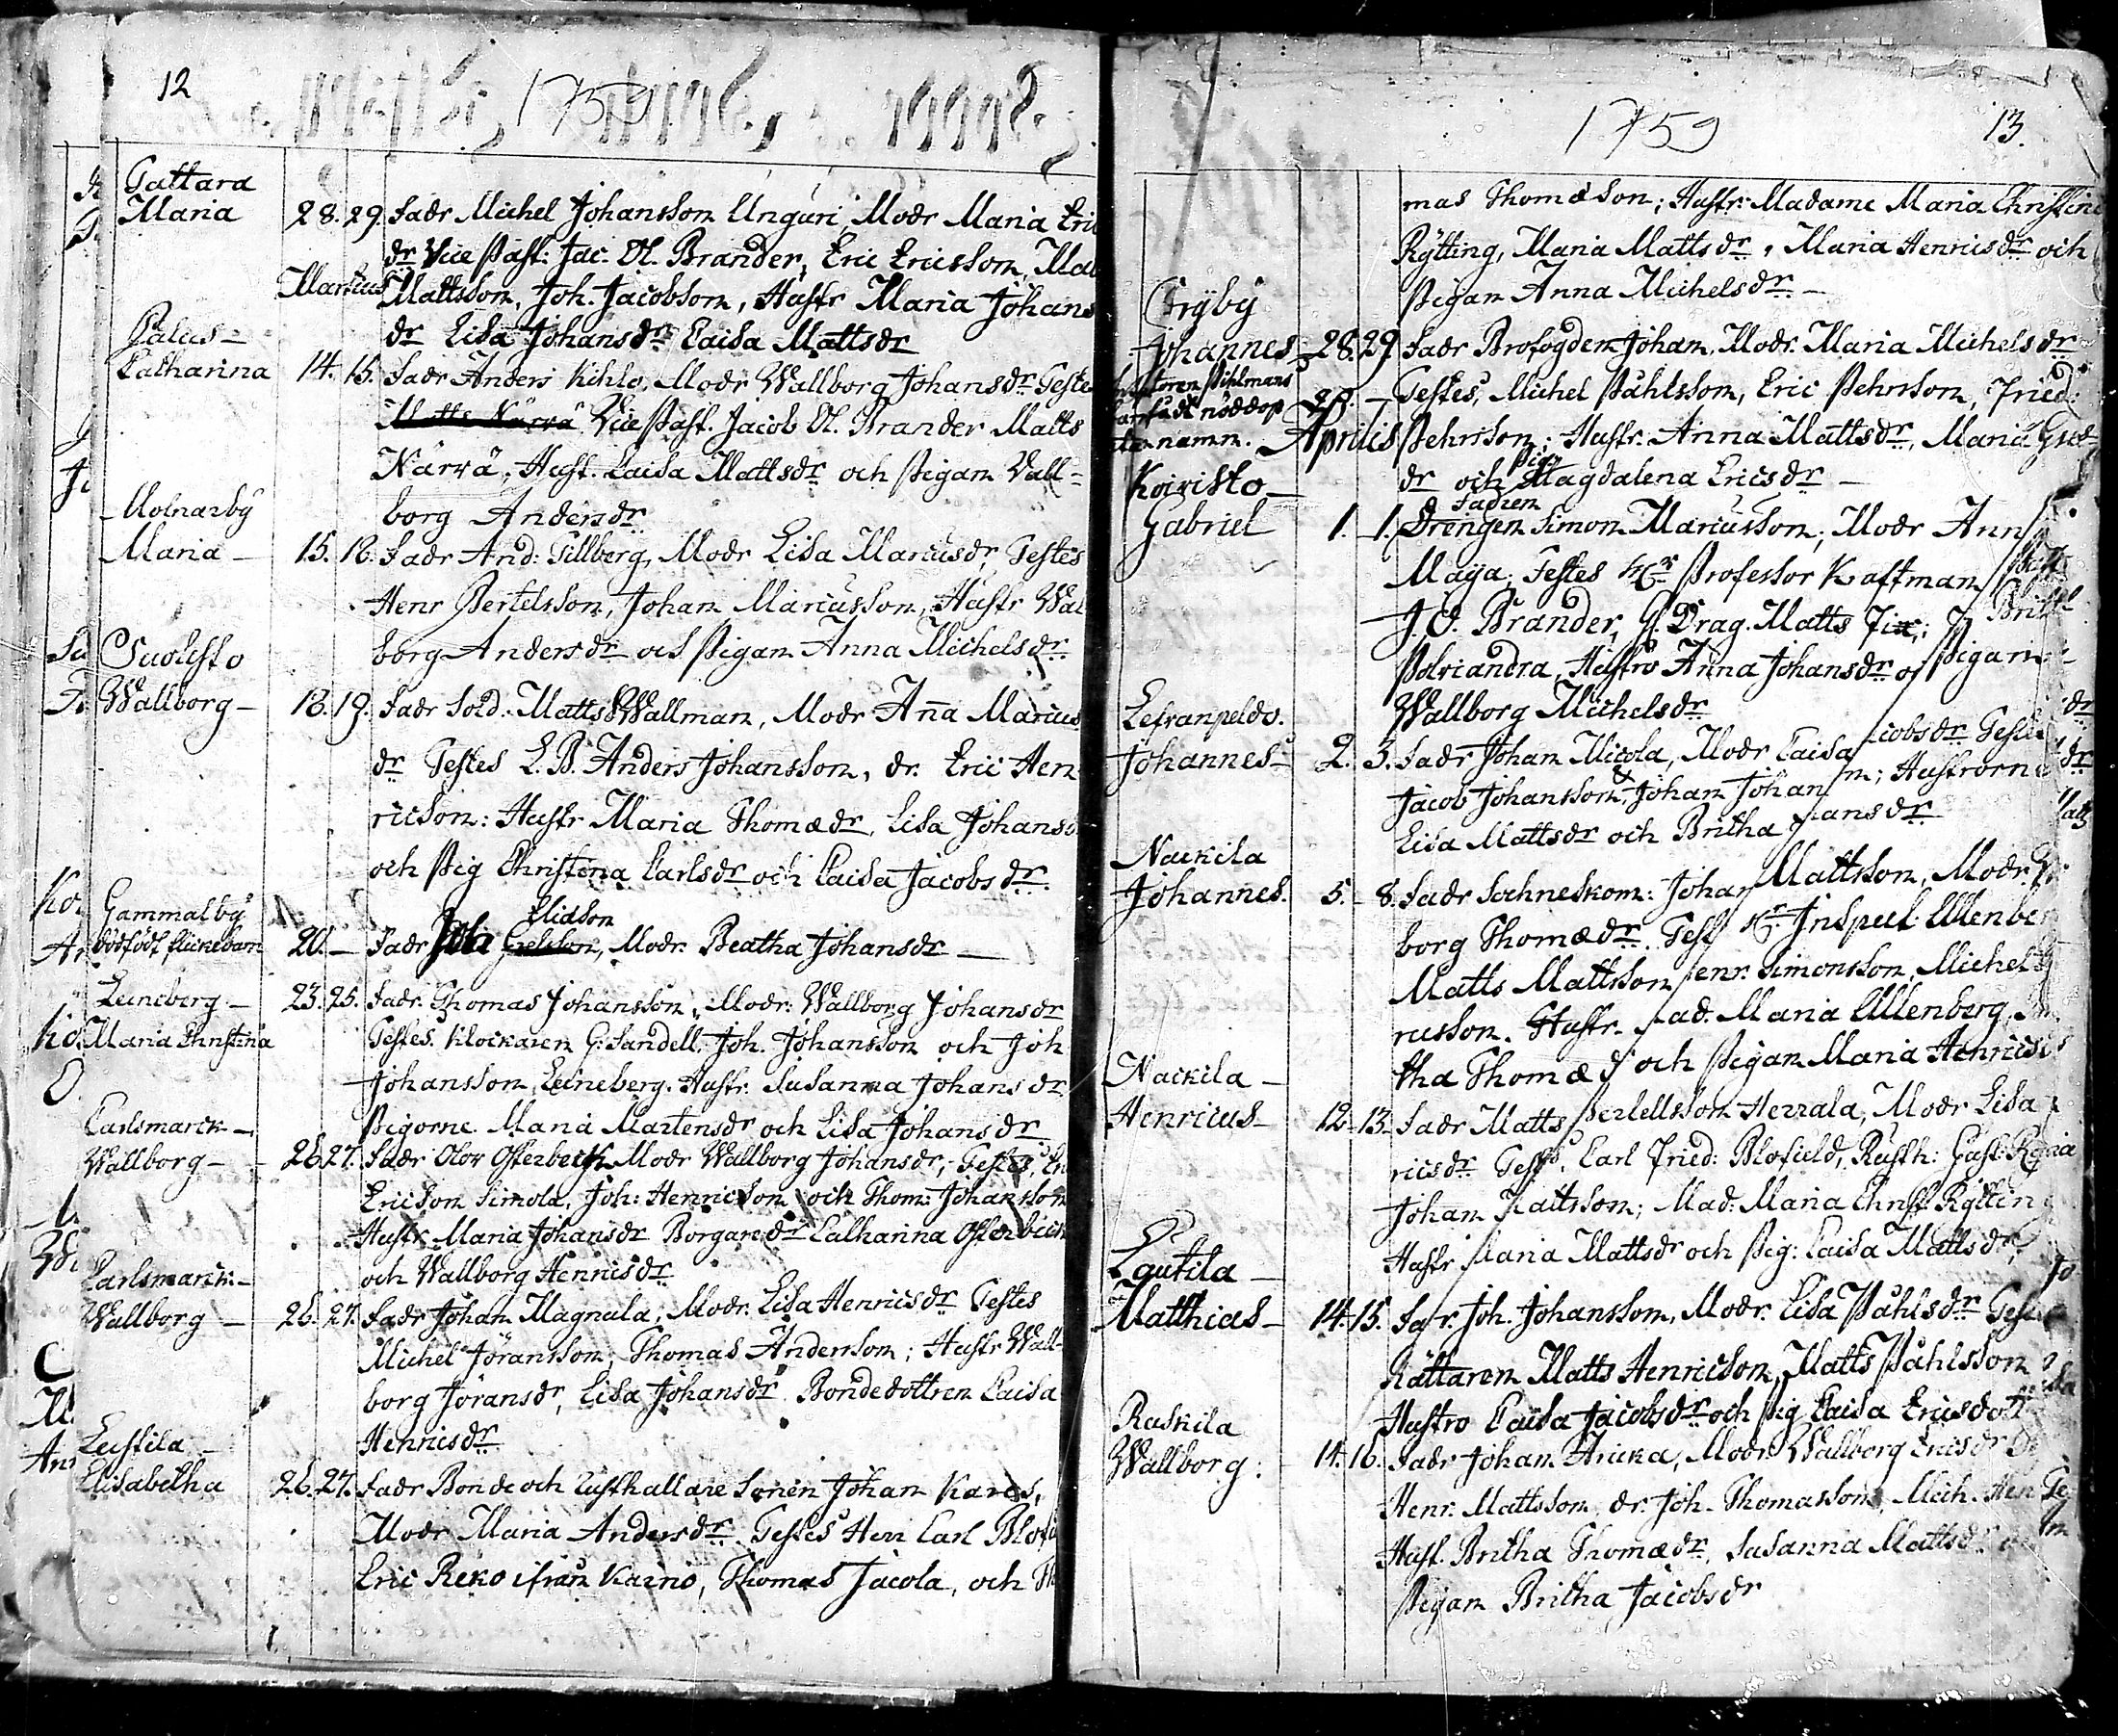 12
1759
Tattara
Maria 28. 29. Fadr Michel Johansson Unguri, Modr Maria Eric
dr Vice Past: Jac. Ol. Brander, Eric Ericsson,
Martius Mattsson, Joh. Jacobson, Hustr Maria Johans
dr Lisa Johansdr Caisa Mattsdr
Palus-
Catharina 14. 15. Fadr Anders Kihlo, Modr Wallborg Johansdr Teste
Matts Närvä Vice Past. Jacob Ol. Brander Matts
Närvä, Hust. Caisa Mattsdr och Pigan Vall-
borg Andersdr
Molnarby
Maria- 15. 18. Fadr And: Tillberg, Modr Lisa Mariusdr, Testes
Henr Bertelsson, Johan Mariusson, Hustr Wal
borg Andersdr och Pigan Anna Michelsdr
Suolisto
Wallborg- 18. 19. Fadr Sold. Matts Wallman, Modr Anna Marius
dr Testes L. B. Anders Johansson, dr. Eric Hen
ricson: Hustr Maria Thomædr, Lisa Johans
och Pig Christina Carlsdr och Caisa Jacobsdr
Gammalby
dödfödt flickebarn 20.- Fadr Joh Elidson, Modr Beatha Johansdr
Leineberg- 23. 25. Fadr Thomas Johansson, Modr: Wallborg Johansdr
Maria Christina Testes. Klockaren G. Sandell, Joh. Johansson och Joh
Johansson Leineberg. Hustr. Susanna Johansdr
Pigorne Maria Martensdr och Lisa Johansdr
Carlsmarck-
Wallborg- 26. 27. Fadr Olov Osterbeck Modr Wallborg Johansdr, Testes,
Ericson Simola, Joh: Henricson och Thom: Johansson
Hustr Maria Johansdr Borgaredr Catharina Osterbeck
och Wallborg Henricsdr
Carlsmarck-
Wallborg- 26. 27. Fadr Johan Magnula, Modr. Lisa Henricsdr Testes
Michel Jöransson, Thomas Andersson; Hustr Wall-
borg Joransdr, Lisa Johansdr Bondedottren Caisa
Henricsdr
Leistila-
Elisabetha 26. 27. Fadr Bonde och Rusthallare Sonen Johan Kares,
Modr Maria Andersdr Testes Herr Carl Blofi
Eric Reko ifrån Kaino, Thomas Jacola, och Th
1759
13.
mas Thomæson; Hustr. Madame Maria Christine
Rÿtting, Maria Mattsdr, Maria Henricsdr och
Pigan Anna Michelsdr.-
Forsby
Johannes 28. 29 Fadr Brofogden Johan, Modr. Maria Michelsdr
Pihlmans Testes, Michel Påhlsson, Eric Pehrsson, Fried:
nöddop
namn. Aprilis Pehrsson; Hustr. Anna Mattsdr, Maria
Koivisto- dr och Pig Magdalena Ericsdr-
Gabriel 1. 1. Fadren Drengen Simon Mariusson; Modr Ann
Maya; Testes Hr Professor Krafftman
J. O. Brander, G. Drag. Matts Fix;
Polviandra, Hustro Anna Johansdr Pigan
Wallborg Michelsdr
Lefranpeldo.
Johannes- 2. 3. Fadr Johan Micola, Modr Caisa cobsdr Teste
Jacob Johansson, & Johan Johan n; Hustrorne
Lisa Mattsdr och Britha ansdr
Naikila
Johannes. 5.- 8. Fadr Sochneskom: Johan Mattsson, Modr.
borg Thomædr. Test Hr Inspect. Ullenber
Matts Mattsson enr. Simonsson, Michel
russon. Hustr. ad: Maria Ullenberg,
tha Thomæd och Pigan Maria Henrics
Naikila-
Henricus- 12-13- Fadr Matts Pertellsson Herrala, Modr Lisa
ricsdr Test. Carl Fried: Blofield, Rusth: Gust:
Johan Mattsson; Mad: Maria Christ. Rÿtting
Hustr Maria Mattsdr och Pig: Caisa Mattsdr
Lautila-
Matthias- 14-15. Fadr. Joh. Johansson, Modr. Lisa Påhlsdr Teste
Rättaren Matts Henricson, Matts Påhlsson
Hustro Caisa Jacobsdr och Pig Caisa Ericsdott
Ruskila
Wallborg: 14. 16. Fadr Johan Aricka, Modr Wallborg Ericsdr
Henr. Mattsson, dr. Joh. Thomasson, Mich. Hen
Hust. Britha Thomædr, Susanna Mattsdr
Pigan Britha Jacobsdr